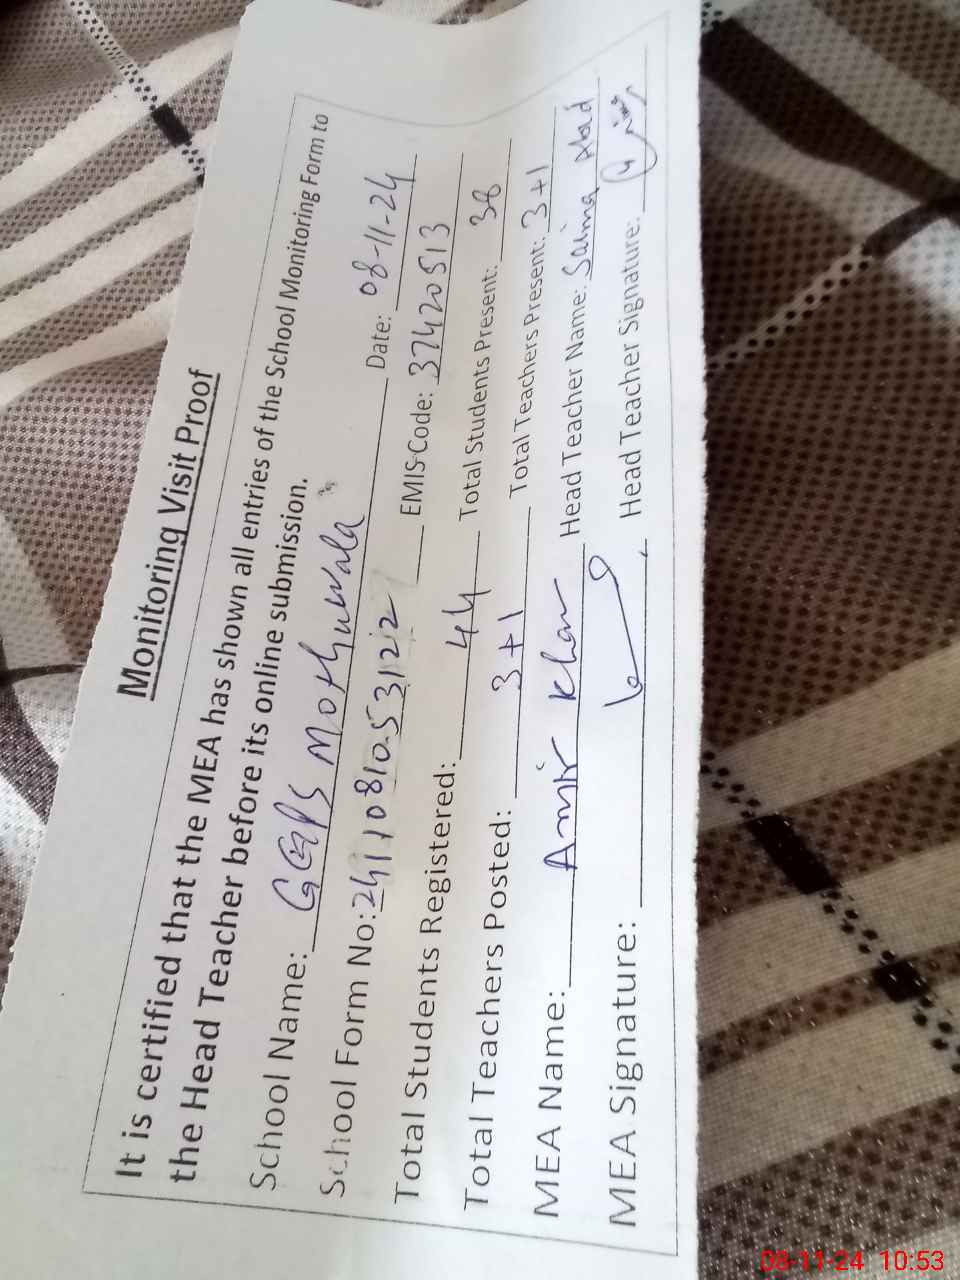 Monitoring Visit Proof
It is certified that the MEA has shown all entries of the School Monitoring Form to
the Head Teacher before its online submission.
School Name: GGPS Mothuwala Date: 08-11-24
School Form No: 24110810531212 EMIS Code: 37420513
Total Students Registered: 44 Total Students Present: 38
Total Teachers Posted: 3+1 Total Teachers Present: 3+1
MEA Name: Amir Khan Head Teacher Name: Saima
MEA Signature: Head Teacher Signature:
08-11-24 10:53